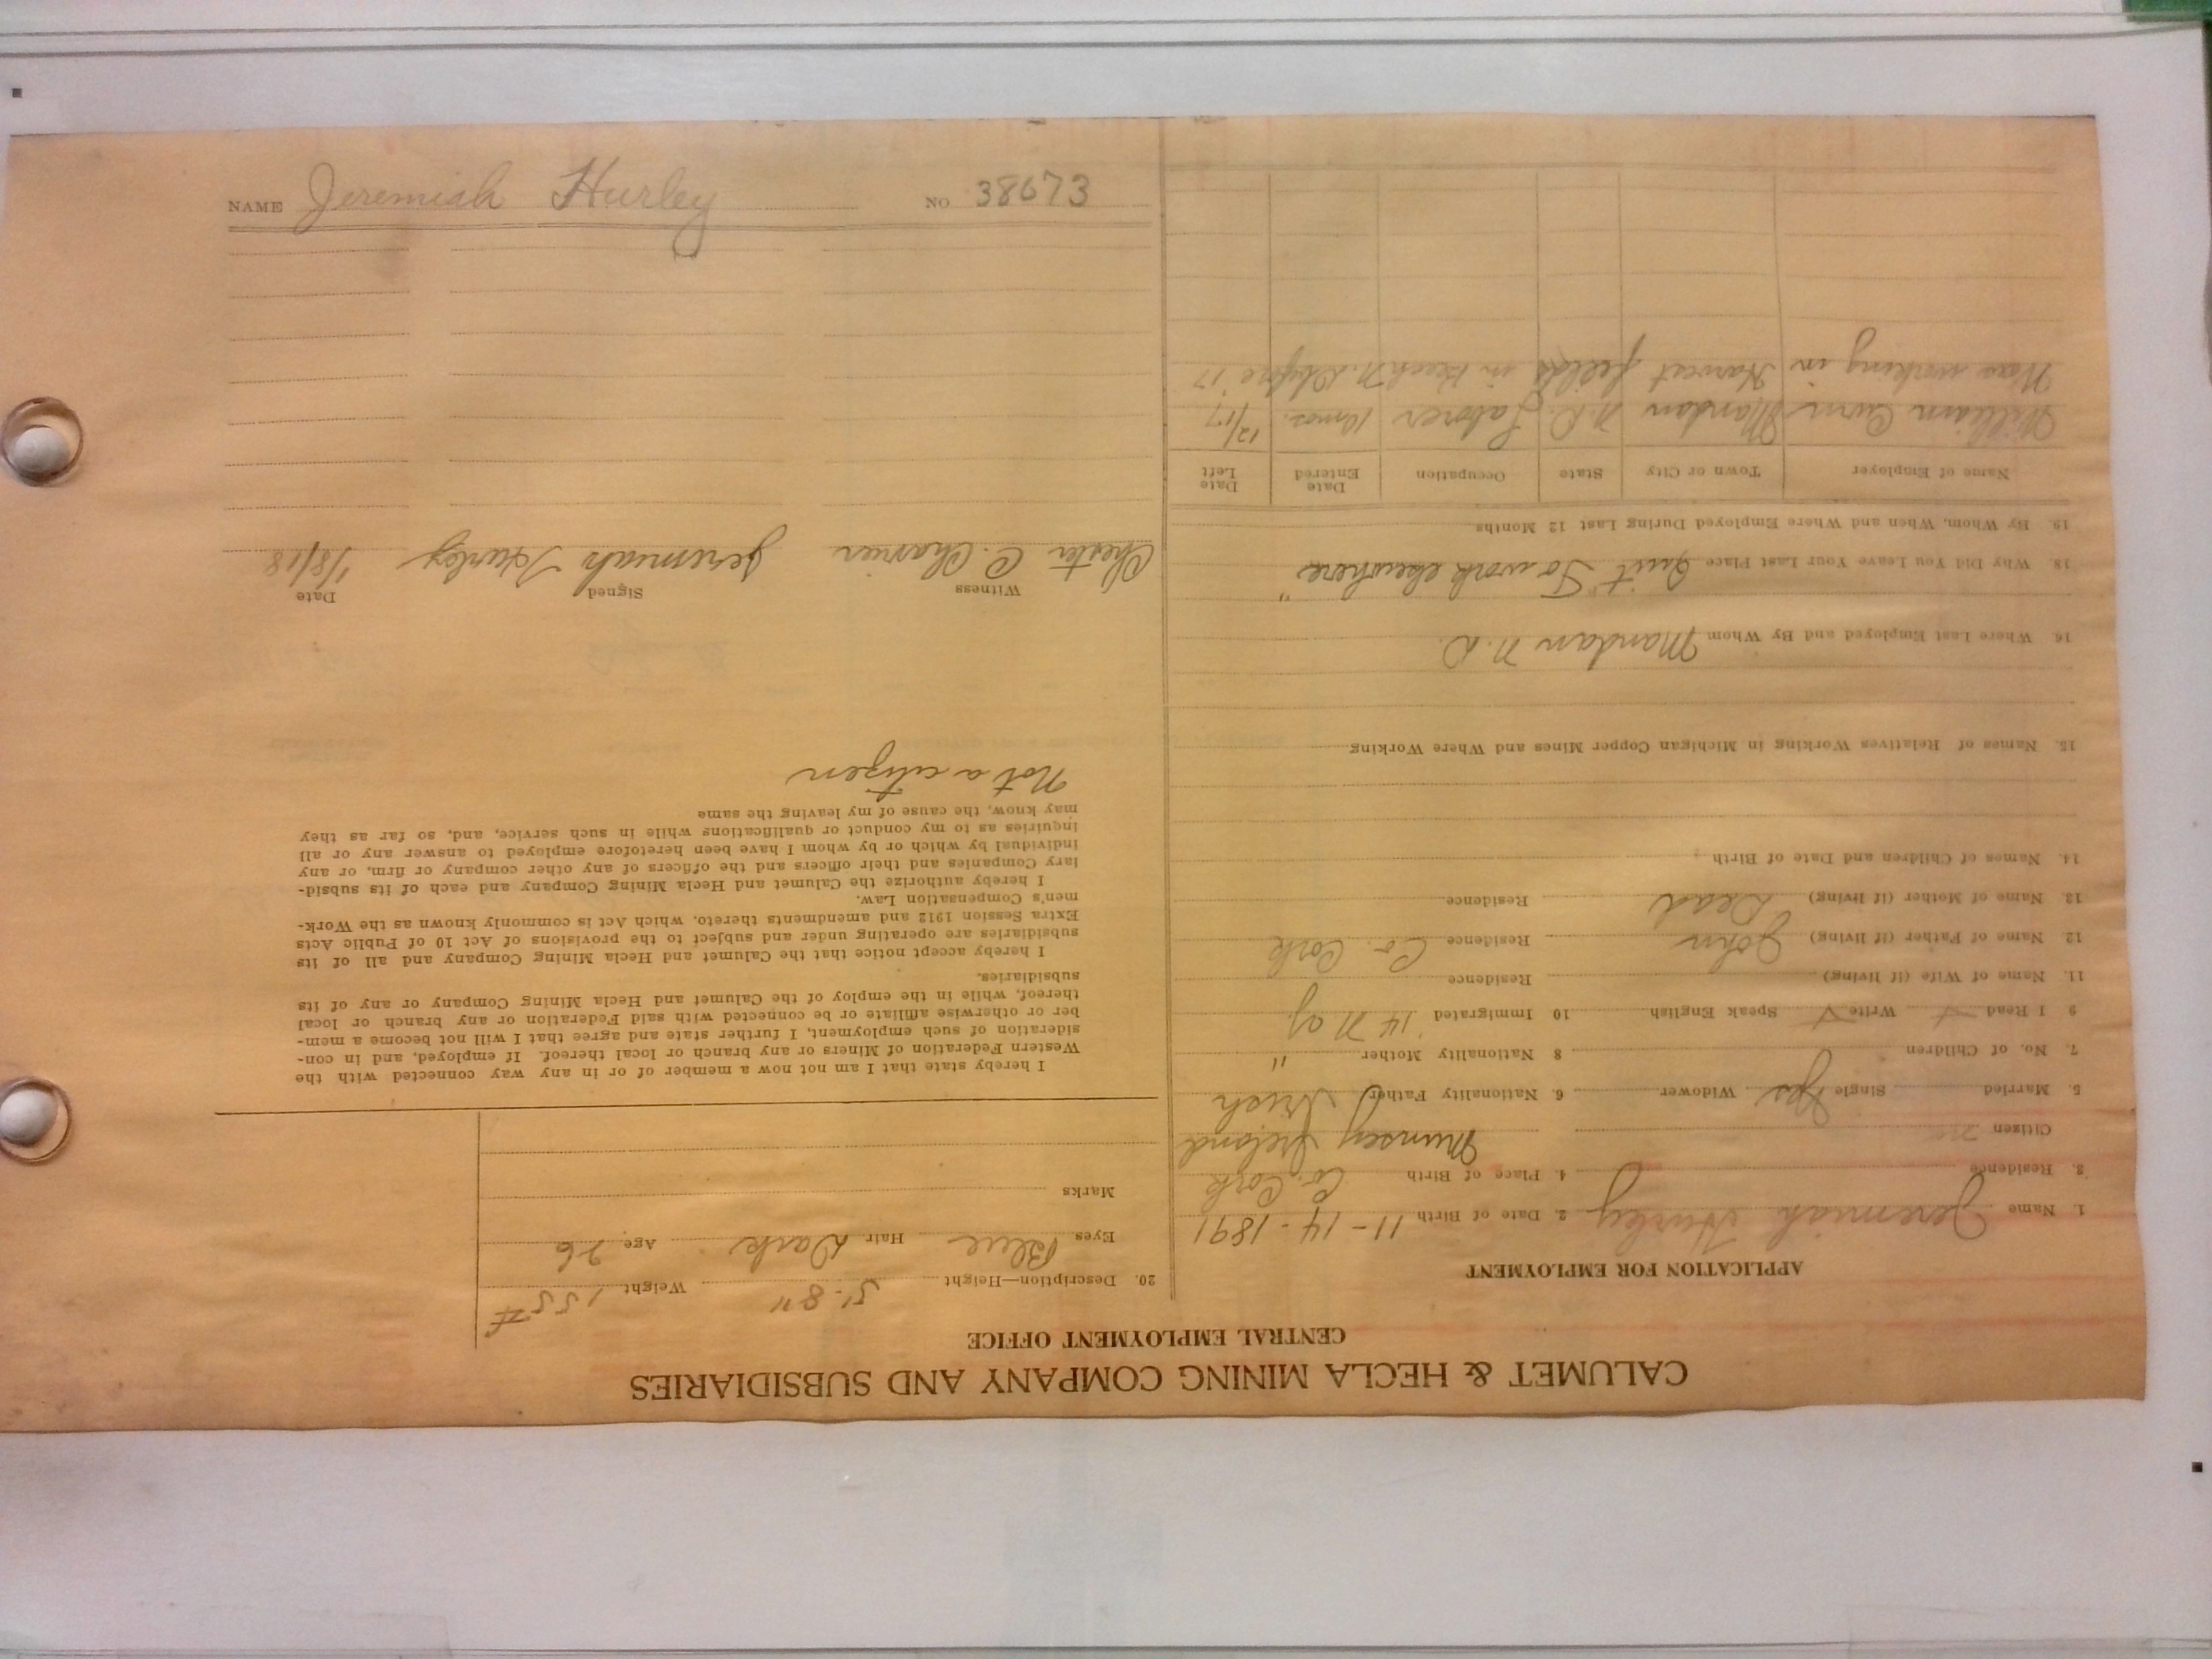 NAME Jeremiah Hurley NO 38673
CALUMET & HECLA MINING COMPANY AND SUBSIDIARIES
CENTRAL EMPLOYMENT OFFICE
APPLICATION FOR EMPLOYMENT
1. Name Jeremiah Hurley 2. Date of Birth 11-14-1891
3. Residence 4. Place of Birth Co. Cork
Citizen Ireland
5. Married Single Yes Widower 6. Nationality Father Irish
7. No. of Children 8 Nationality Mother "
9 I Read Write Speak English 10 Immigrated '14
11. Name of Wife (if living) Residence
12. Name of Father (if living) John Residence Co. Cork
13. Name of Mother (if living) Dead Residence
14. Names of Children and Date of Birth
15. Names of Relatives Working in Michigan Copper Mines and Where Working
16. Where Last Employed and By Whom Mandan N.D.
18. Why Did You Leave Your Last Place Quit "To work elsewhere"
19. By Whom, When and Where Employed During Last 12 Months
Name of Employer Town or City State Occupation Date Entered Date Left
William Mandan N.D. Laborer 10 mos. 12/17
Was working in Harvest fields in '17
20. Description—Height 5'-8" Weight 155#
Eyes Blue Hair Dark Age 26
Marks
I hereby state that I am not now a member of or in any way connected with the
Western Federation of Miners or any branch or local thereof. If employed, and in con-
sideration of such employment, I further state and agree that I will not become a mem-
ber or otherwise affiliate or be connected with said Federation or any branch or local
thereof, while in the employ of the Calumet and Hecla Mining Company or any of its
subsidiaries.
I hereby accept notice that the Calumet and Hecla Mining Company and all of its
subsidiaries are operating under and subject to the provisions of Act 10 of Public Acts
Extra Session 1912 and amendments thereto, which Act is commonly known as the Work-
men's Compensation Law.
I hereby authorize the Calumet and Hecla Mining Company and each of its subsid-
iary Companies and their officers and the officers of any other company or firm, or any
individual by which or by whom I have been heretofore employed to answer any or all
inquiries as to my conduct or qualifications while in such service, and, so far as they
may know, the cause of my leaving the same
Not a citizen
Witness Signed Date
Chester C. Jeremiah Hurley 1/8/18